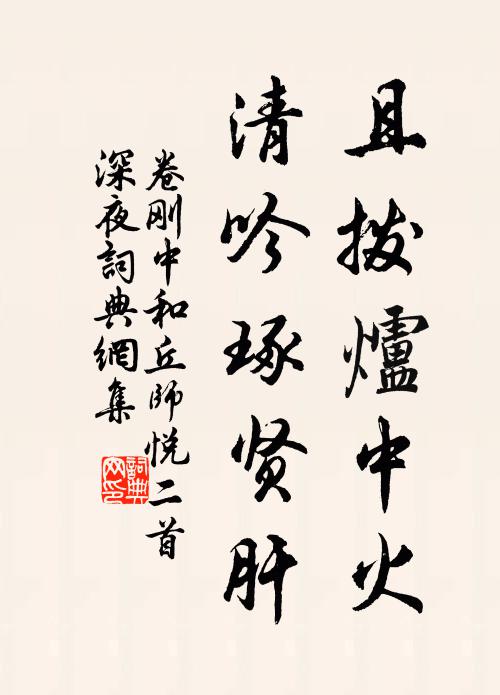 且拨爐中火
清吟琢贤肝
卷刚中和丘师悦二首
深夜詞典網集
詞典
网印